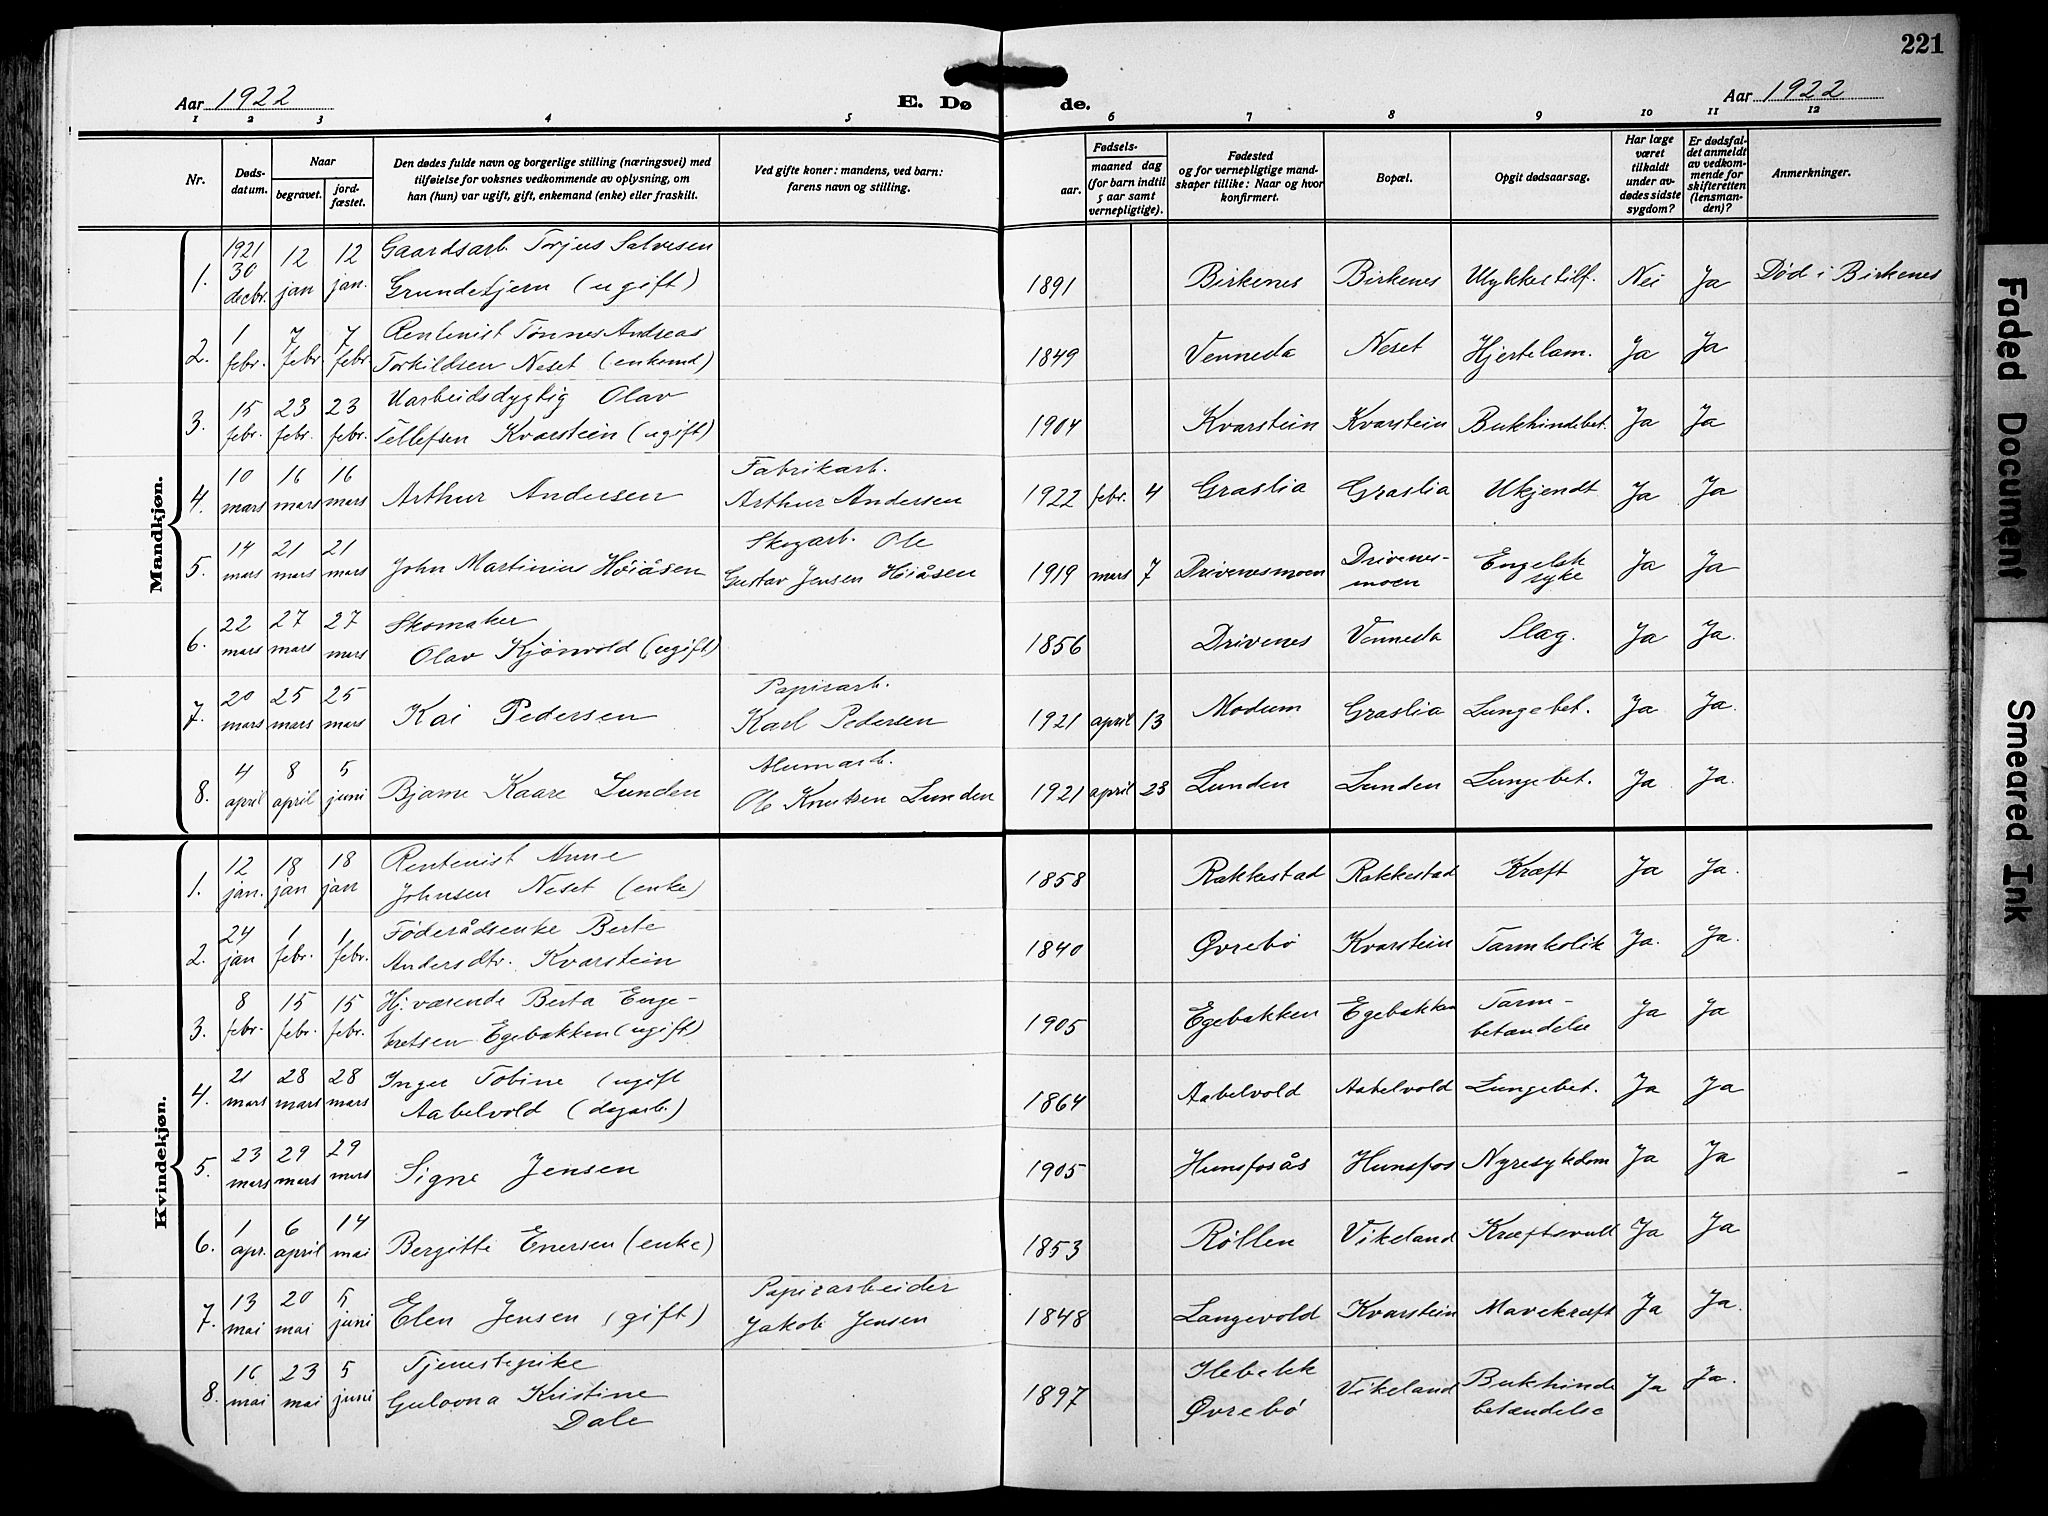 221
Aar 1922
E. Dø
de.
Aar 1922
1 2 3 4 5 6 7 8 9 10 11 12
Nr.
Døds-
datum.
Naar
begravet.
jord-
fæstet.
Den dødes fulde navn og borgerlige stilling (næringsvei) med
tilføielse for voksnes vedkommende av oplysning, om
han (hun) var ugift, gift, enkemand (enke) eller fraskilt.
Ved gifte koner: mandens, ved barn:
farens navn og stilling.
Fødsels-
aar.
maaned dag
(for barn indtil
5 aar samt
vernepligtige).
Fødested
og for vernepligtige mand-
skaper tillike: Naar og hvor
konfirmert.
Bopæl.
Opgit dødsaarsag.
Har læge
været
tilkaldt
under av-
dødes sidste
sygdom?
Er dødsfal-
det anmeldt
av vedkom-
mende for
skifteretten
(lensman-
den)?
Anmerkninger.
Mandkjøn.
1. 1921 30 decbr. 12 jan 12 jan. Gaardsarb. Torjus Salvesen
Grundetjern (ugift) 1891 Birkenes Birkenes Ulykkestilf. Nei Ja Død i Birkenes
2. 1 febr. 7 febr. 7 febr. Rentenist Tønnes Andreas
Torkildsen Neset (enkemd) 1849 Vennesla Neset Hjertelam. Ja Ja
3. 15 febr. 23 febr. 23 febr. Uarbeidsdygtig Olav
Tellefsen Kvarstein (ugift) 1904 Kvarstein Kvarstein Bukhindebet. Ja Ja
4. 10 mars 16 mars 16 mars Arthur Andersen Fabrikarb.
Arthur Andersen 1922 febr. 4 Graslia Graslia Ukjendt Ja Ja
5. 14 mars 21 mars 21 mars John Martinius Høiåsen Skogarb. Ole
Gustav Jensen Høiåsen 1919 mars 7 Drivenesmoen Drivenes-
moen Engelsk
syke Ja Ja
6. 22 mars 27 mars 27 mars Skomaker
Olav Kjønvold (ugift) 1856 Drivenes Vennesla Slag. Ja Ja.
7. 20 mars 25 mars 25 mars Kai Pedersen Papirarb.
Karl Pedersen 1921 april 13 Modum Graslia Lungebet. Ja Ja.
8. 4 april 8 april 5 juni Bjarne Kaare Lunden Alumarb.
Ole Knutsen Lunden 1921 april 23 Lunden Lunden Lungebet. Ja Ja.
Kvindekjøn.
1. 12 jan. 18 jan 18 jan Rentenist Anne
Johnsen Neset (enke) 1858 Rakkestad Rakkestad Kræft Ja Ja.
2. 24 jan 1 febr. 1 febr. Føderådsenke Berte
Andersdtr. Kvarstein 1840 Øvrebø Kvarstein Tarmkolik Ja. Ja.
3. 8 febr. 15 febr. 15 febr. Hj.værende Berta Enge-
bretsen Egebakken (ugift) 1905 Egebakken Egebakken Tarm-
betændelse Ja Ja
4. 21 mars 28 mars 28 mars Inger Tobine (ugift
Aabelvold (dagarb.) 1864 Aabelvold Aabelvold Lungebet. Ja Ja
5. 23 mars 29 mars 29 mars Signe Jensen 1905 Hunsfosås Hunsfos Nyresykdom Ja Ja
6. 1 apr. 6 april 14 mai Bergitte Enersen (enke) 1853 Røllen Vikeland Kræftsvulst Ja Ja
7. 13 mai 20 mai 5 juni Elen Jensen (gift) Papirarbeider
Jakob Jensen 1848 Langevold Kvarstein Mavekræft Ja Ja.
8. 16 mai 23 mai 5 juni Tjenestepike
Gulovna Kristine
Dale 1897 Ilebekk
Øvrebø Vikeland Bukhinde
betændelse Ja Ja.
Faded Document
Smeared Ink